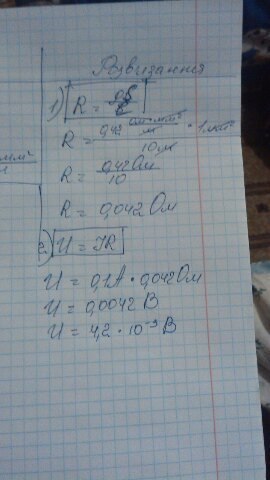 Розвязання
1) R = 
R = 0,42 Ом·мм² / м · 1мм² / 10м
R = 0,42Ом / 10
R = 0,042 Ом
2) U = IR
U = 0,1А · 0,042Ом
U = 0,0042 В
U = 4,2 · 10⁻³ В
мм²